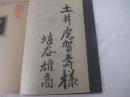 土井虎賀寿様
埴谷雄高